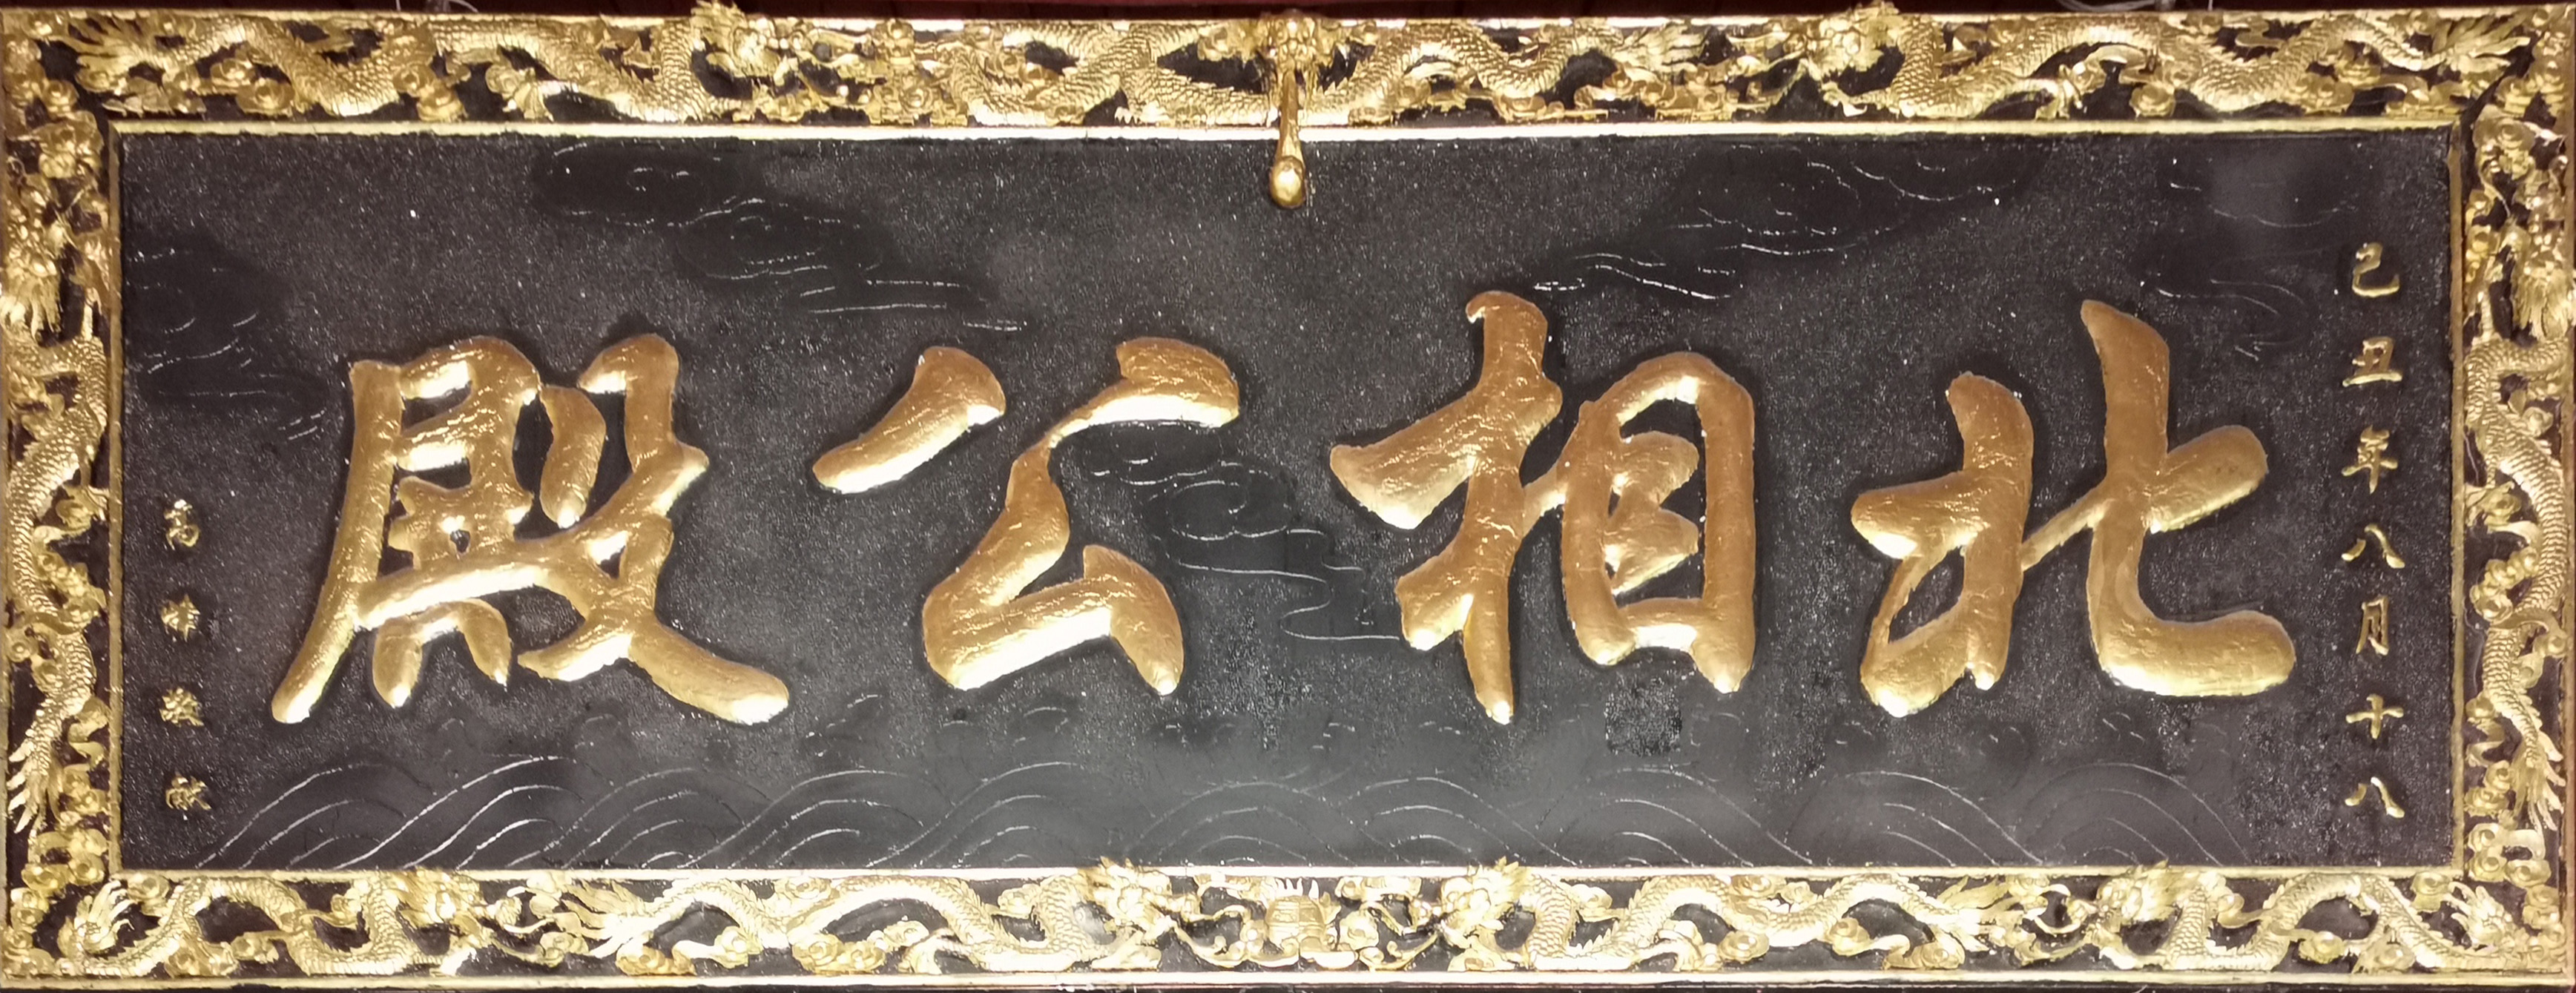 己丑年八月十八
北相公殿
高
敬